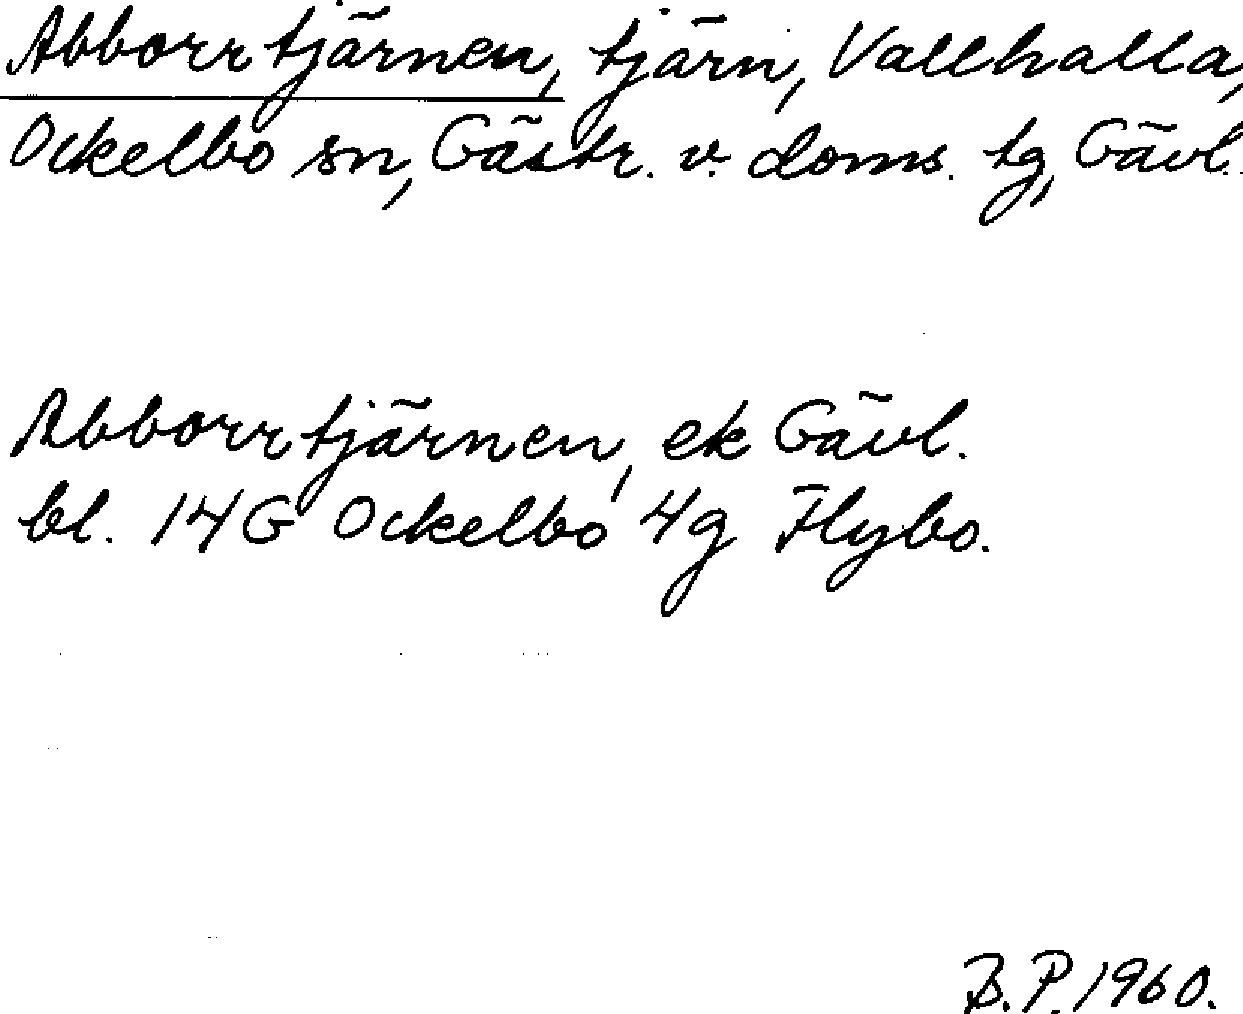 Abborrtjärnen, tjärn, Vallhalla,
Ockelbo sn, Gästr. v. doms. tg, Gävl.
Abborrtjärnen, ek Gävl.
bl. 14G Ockelbo 4g Flybo.
B.P. 1960.